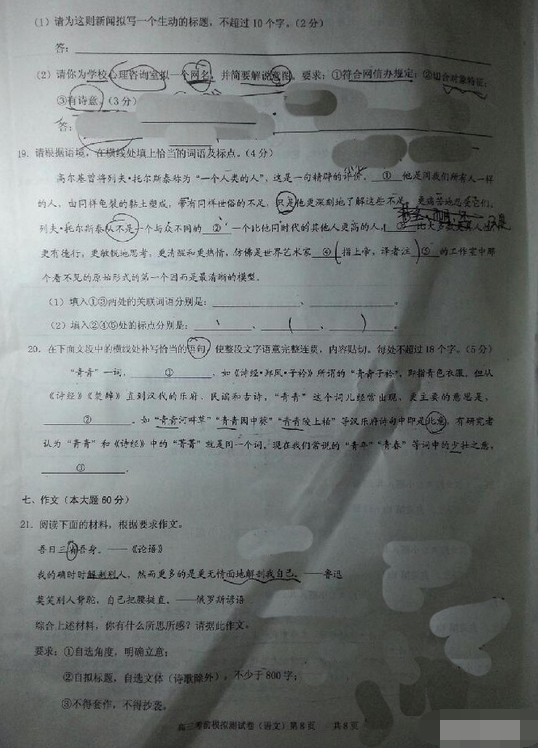 (1) 请为这则新闻拟写一个生动的标题，不超过10个字。(2分)
答：
(2) 请你为学校心理咨询室拟一个网名，并简要解说意图。要求：①符合网信办规定；②切合对象特征；
③有诗意。(3分)
答：
19. 请根据语境，在横线处填上恰当的词语及标点。(4分)
高尔基曾将列夫·托尔斯泰称为“一个人类的人”，这是一句精辟的评价。 ① 他是同我们所有人一样
的人，由同样龟裂的黏土塑成，带有同样世俗的不足，只是他更深刻地了解这些不足，更痛苦地忍受它们。
列夫·托尔斯泰从不是一个与众不同的 ② 一个比他同时代的其他人更高的人，
更有德行，更敏锐地思考，更清醒和更热情，仿佛是世界艺术家 ④ (指上帝，译者注) ⑤ 的工作室中那
个看不见的原始形式的第一个因而是最清晰的模型。
(1) 填入①③两处的关联词语分别是： 、 。
(2) 填入②④⑤处的标点分别是： 、 ( 、 ) 。
20. 在下面文段中的横线处补写恰当的语句，使整段文字语意完整连贯，内容贴切，每处不超过18个字。(5分)
“青青”一词， ① ，如《诗经·郑风·子衿》所谓的“青青子衿”，即指青色衣服。但从
《诗经》《楚辞》直到汉代的乐府、民谣和古诗，“青青”这个词儿经常出现，更主要的意思是，
② 。如“青青河畔草”“青青园中葵”“青青陵上柏”等汉乐府诗句中即是此意。有研究者
认为“青青”和《诗经》中的“菁菁”就是同一个词。现在我们常说的“青年”“青春”等词中的少壮之意，
③ 。
七、作文(本大题60分)
21. 阅读下面的材料，根据要求作文。
吾日三省吾身。——《论语》
我的确时时解剖别人，然而更多的是更无情面地解剖我自己。——鲁迅
莫笑别人背驼，自己把腰挺直。——俄罗斯谚语
综合上述材料，你有什么所思所感？请据此作文。
要求：①自选角度，明确立意；
②自拟标题，自选文体(诗歌除外)，不少于800字；
③不得套作，不得抄袭。
高三考前模拟测试卷(语文) 第8页 共8页